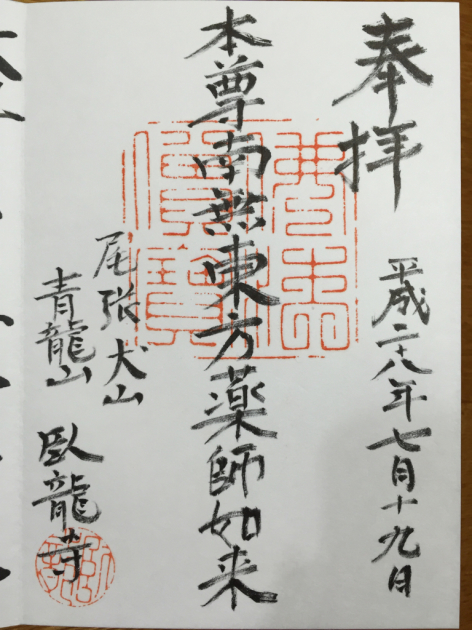 奉拝
平成二十八年七月十九日
本尊南無東方薬師如来
尾張犬山
青龍山
臥龍寺